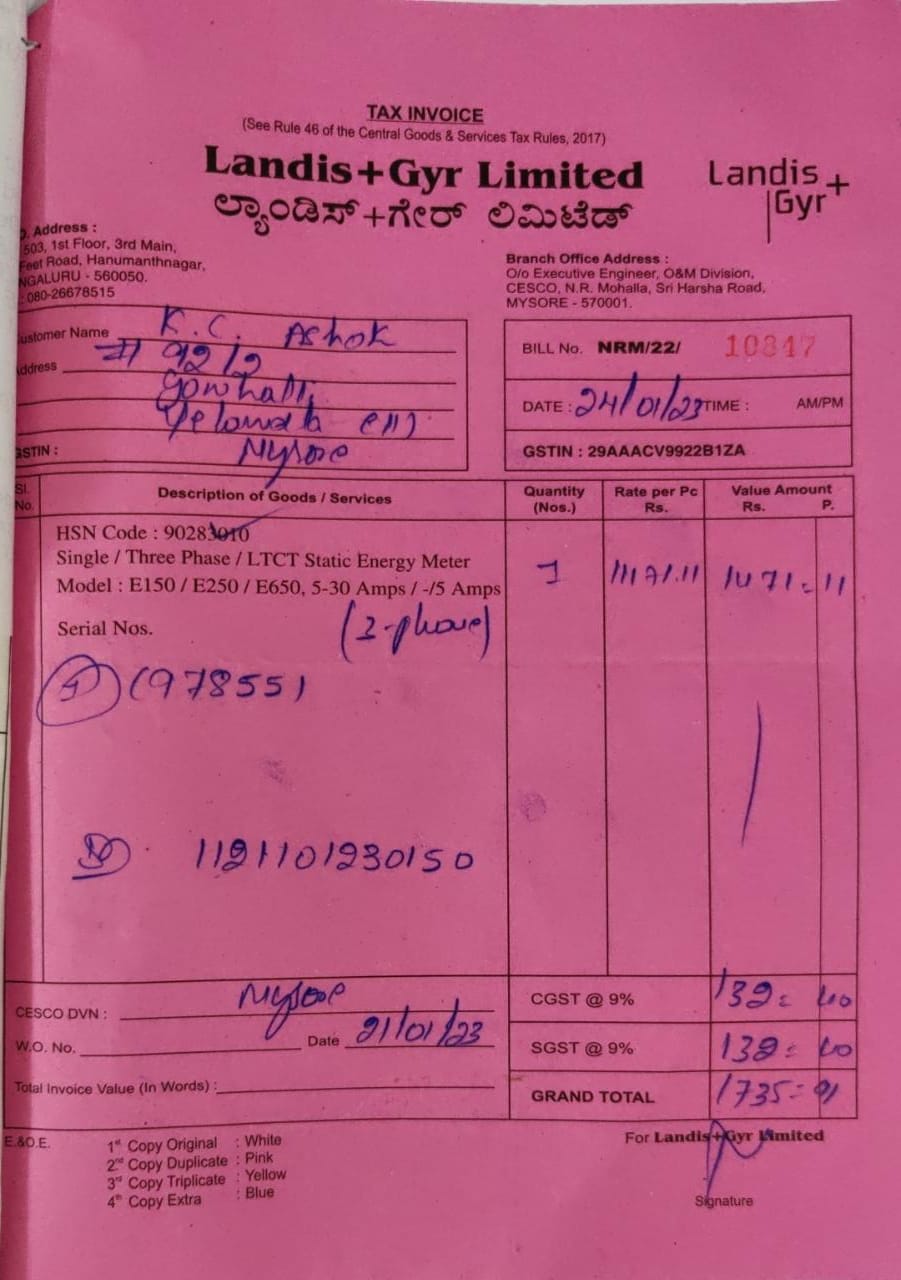 TAX INVOICE
(See Rule 46 of the Central Goods & Services Tax Rules, 2017)
Landis+Gyr Limited
ಲ್ಯಾಂಡಿಸ್+ಗೇರ್ ಲಿಮಿಟೆಡ್
Landis+
Gyr
Address :
503, 1st Floor, 3rd Main,
Feet Road, Hanumanthnagar,
NGALURU - 560050.
: 080-26678515
Branch Office Address :
O/o Executive Engineer, O&M Division,
CESCO, N.R. Mohalla, Sri Harsha Road,
MYSORE - 570001.
ustomer Name K.C. Ashok
ddress # 92/2
Yelandur
Mysore
GSTIN :
BILL No. NRM/22/ 10847
DATE : 24/01/23 TIME : AM/PM
GSTIN : 29AAACV9922B1ZA
Sl. No. Description of Goods / Services Quantity (Nos.) Rate per Pc Rs. Value Amount Rs. P.
HSN Code : 90283010
Single / Three Phase / LTCT Static Energy Meter
Model : E150 / E250 / E650, 5-30 Amps / -/5 Amps 1 1471.11 1471=11
Serial Nos. (3-phase)
1121101230150
CESCO DVN : Mysore
W.O. No. Date 21/01/23
Total Invoice Value (In Words) :
CGST @ 9% 132=40
SGST @ 9% 132=40
GRAND TOTAL 1735=91
E.&O.E.
1st Copy Original : White
2nd Copy Duplicate : Pink
3rd Copy Triplicate : Yellow
4th Copy Extra : Blue
For Landis+Gyr Limited
Signature